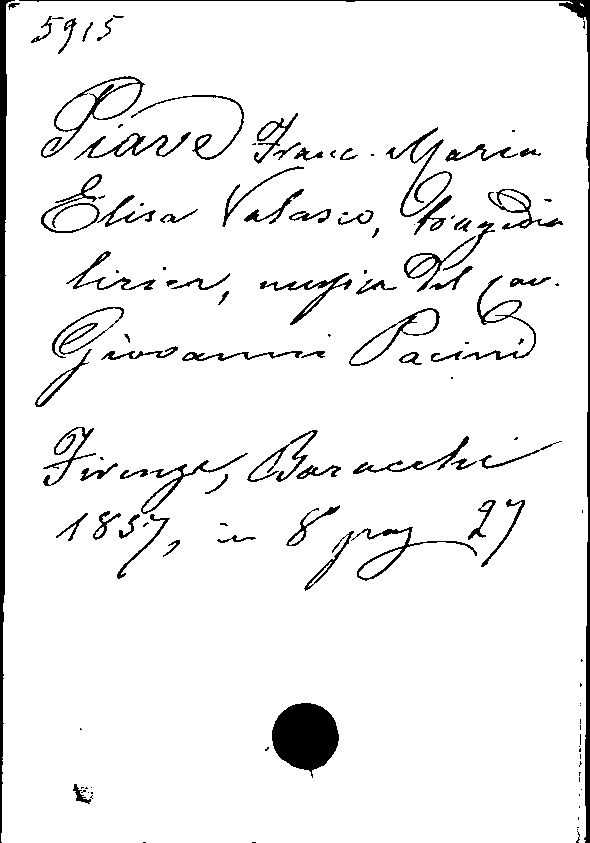 5915
Piave Franc. Maria
Elisa Valasco, tragedia
lirica, musica del cav.
Giovanni Pacini
Firenze, Baracchi
1857, in 8° pag 27